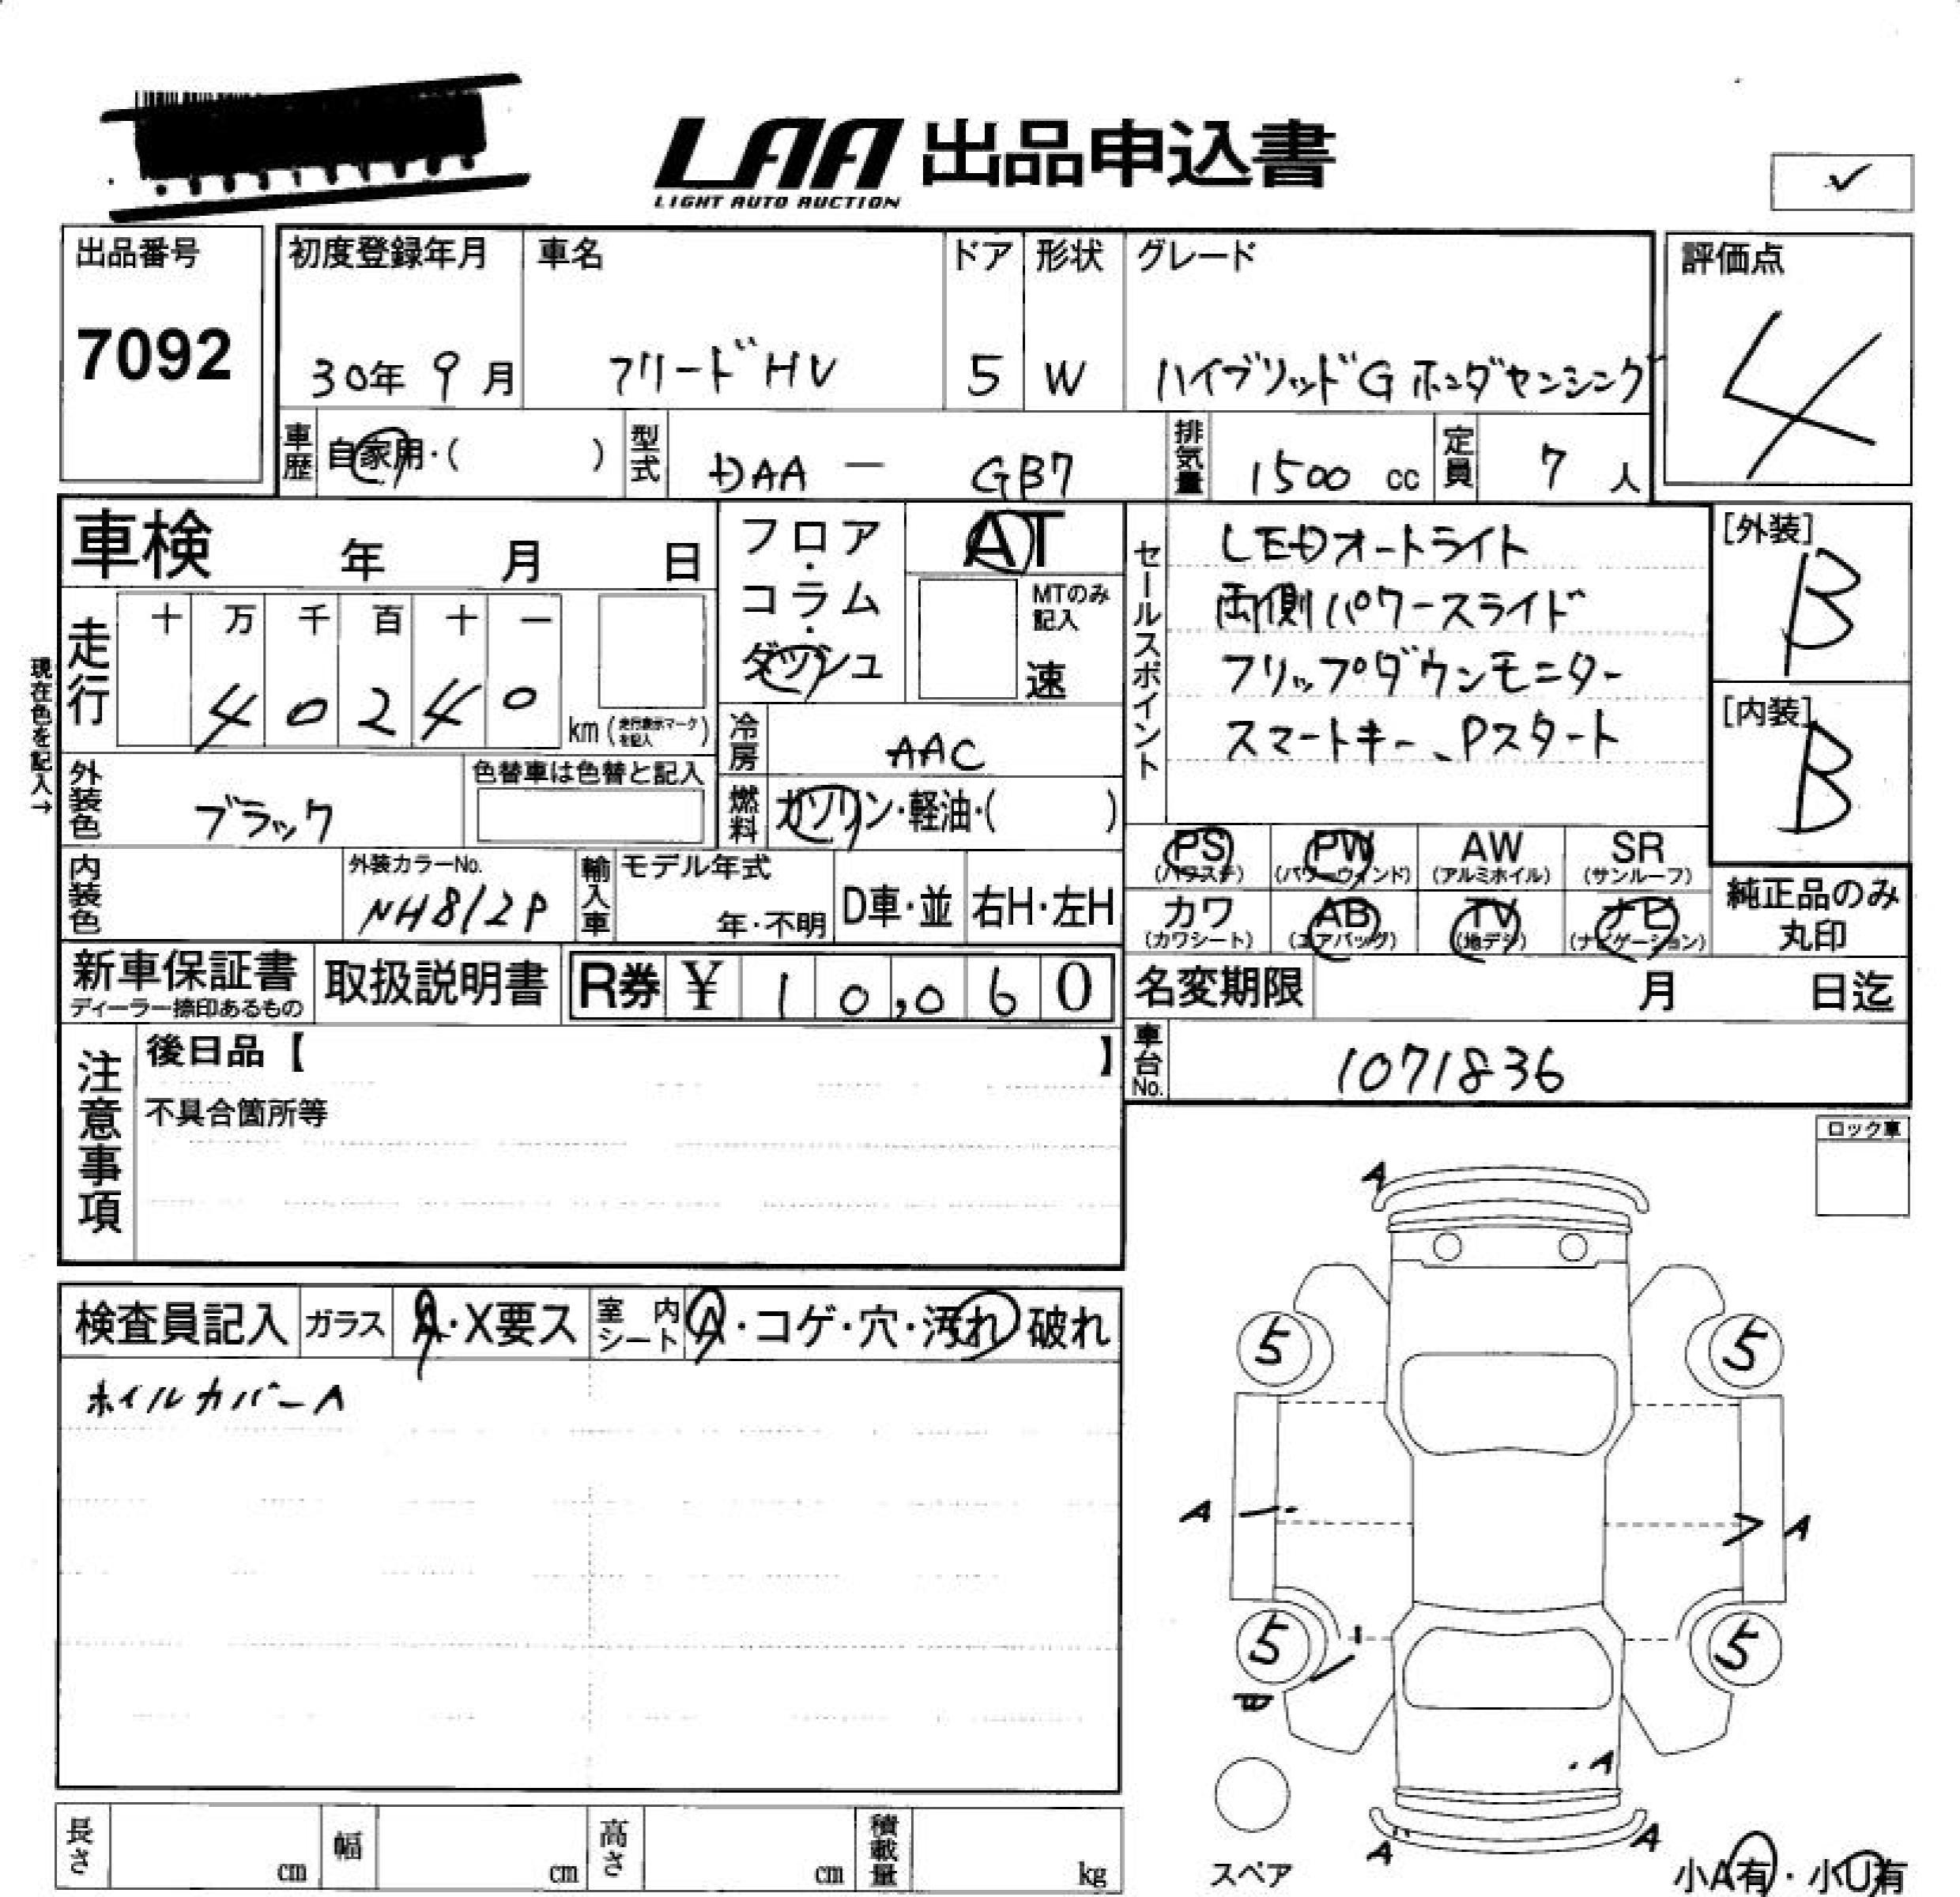 LAA 出品申込書
LIGHT AUTO AUCTION
✓
出品番号
7092
初度登録年月
30年 9月
車名
フリードHV
ドア
5
形状
W
グレード
ハイブリッドG ホンダセンシング
評価点
4
車歴
自家用・( )
型式
DAA — GB7
排気量
1500 cc
定員
7 人
車検 年 月 日
フロア・コラム・ダッシュ
AT
MTのみ記入
速
セールスポイント
LEDオートライト
両側パワースライド
フリップダウンモニター
スマートキー、Pスタート
[外装]
B
[内装]
B
現在色を記入→
走行
十 万 千 百 十 一
4 0 2 4 0
km (走行表示マークを記入)
冷房
AAC
外装色
ブラック
色替車は色替と記入
燃料
ガソリン・軽油・( )
PS (パワステ)
PW (パワーウィンド)
AW (アルミホイル)
SR (サンルーフ)
カワ (カワシート)
AB (エアバッグ)
TV (地デジ)
ナビ (ナビゲーション)
純正品のみ
丸印
内装色
外装カラーNo.
NH812P
輸入車
モデル年式
年・不明
D車・並
右H・左H
新車保証書
ディーラー捺印あるもの
取扱説明書
R券 ¥ 10,060
名変期限 月 日迄
車台No.
1071836
注意事項
後日品【 】
不具合箇所等
ロック車
検査員記入
ガラス
A・X要ス
室内シート
A・コゲ・穴・汚れ 破れ
ホイルカバーA
A
5 5
A A
5 5
A
A A
スペア
小A有・小U有
長さ cm
幅 cm
高さ cm
積載量 kg